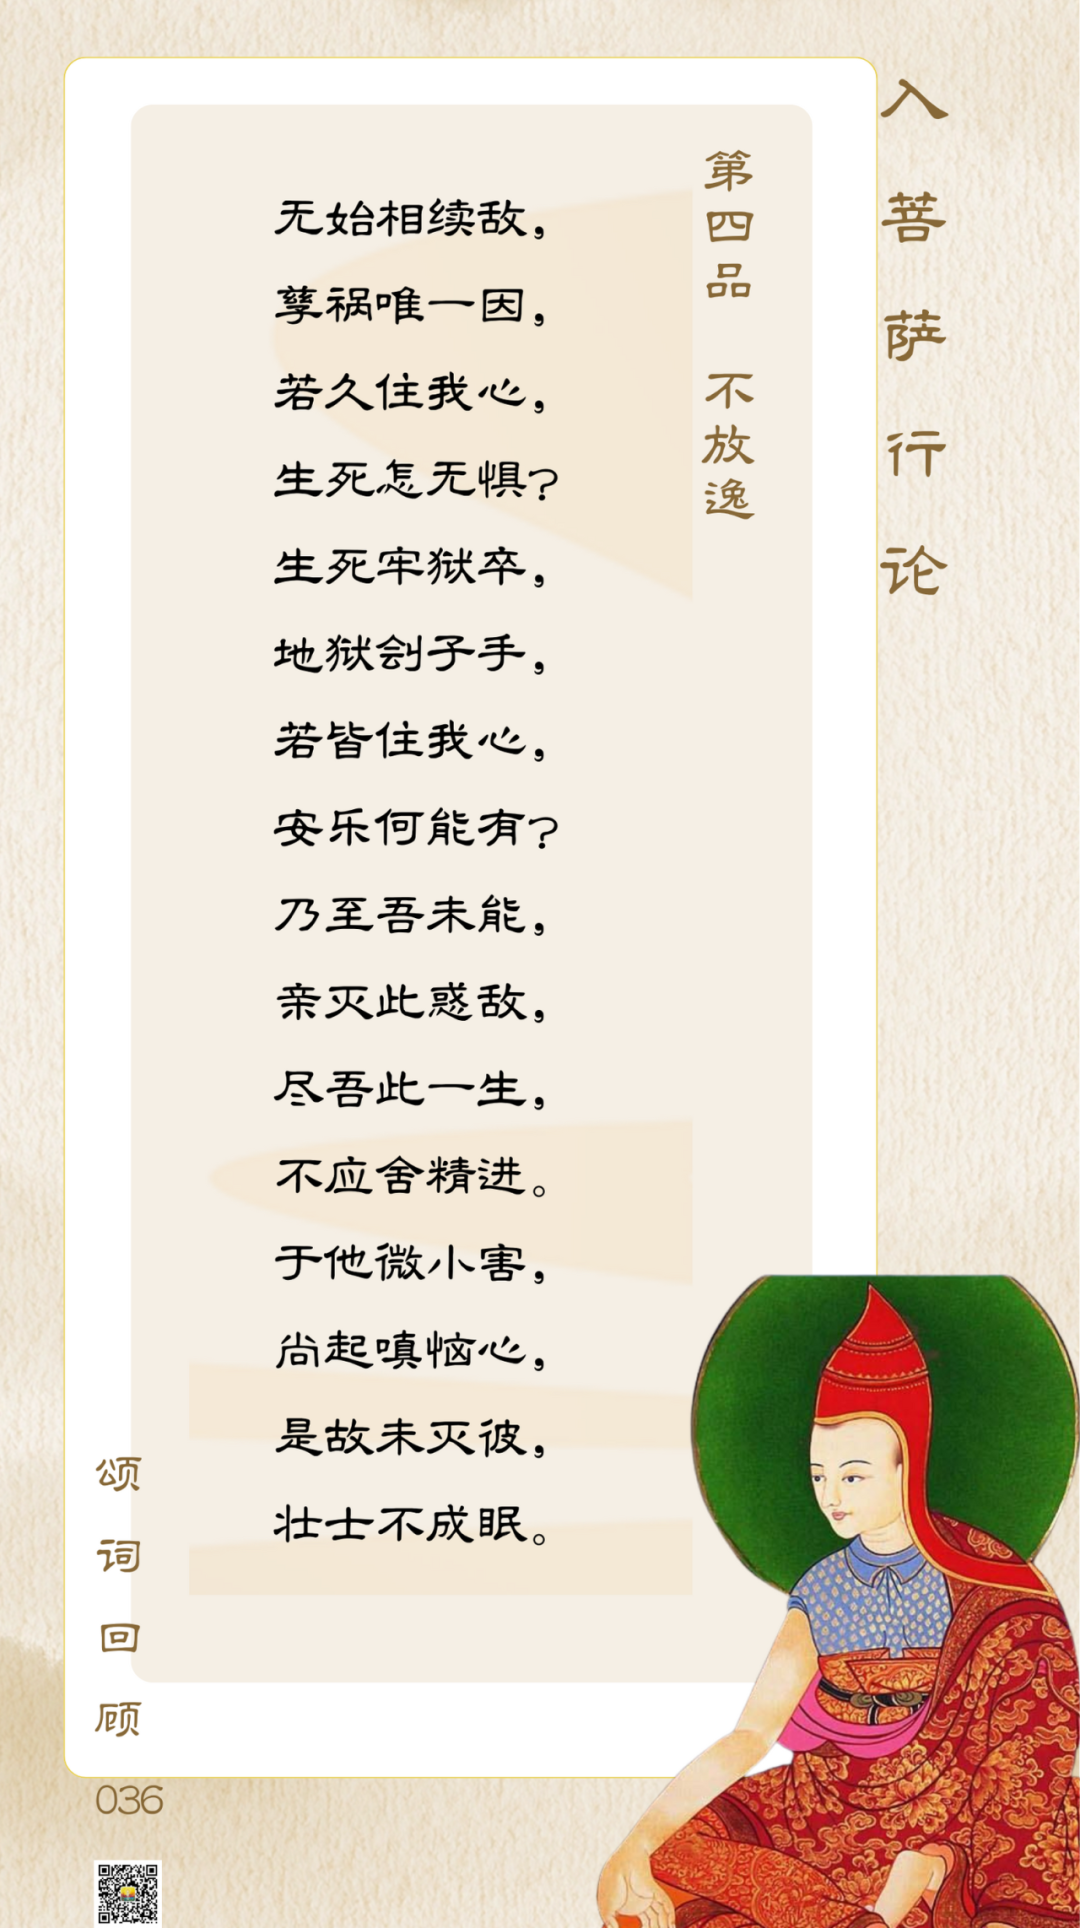 入菩萨行论
第四品 不放逸
无始相续敌，
孽祸唯一因，
若久住我心，
生死怎无惧？
生死牢狱卒，
地狱刽子手，
若皆住我心，
安乐何能有？
乃至吾未能，
亲灭此惑敌，
尽吾此一生，
不应舍精进。
于他微小害，
尚起嗔恼心，
是故未灭彼，
壮士不成眠。
颂词回顾
036